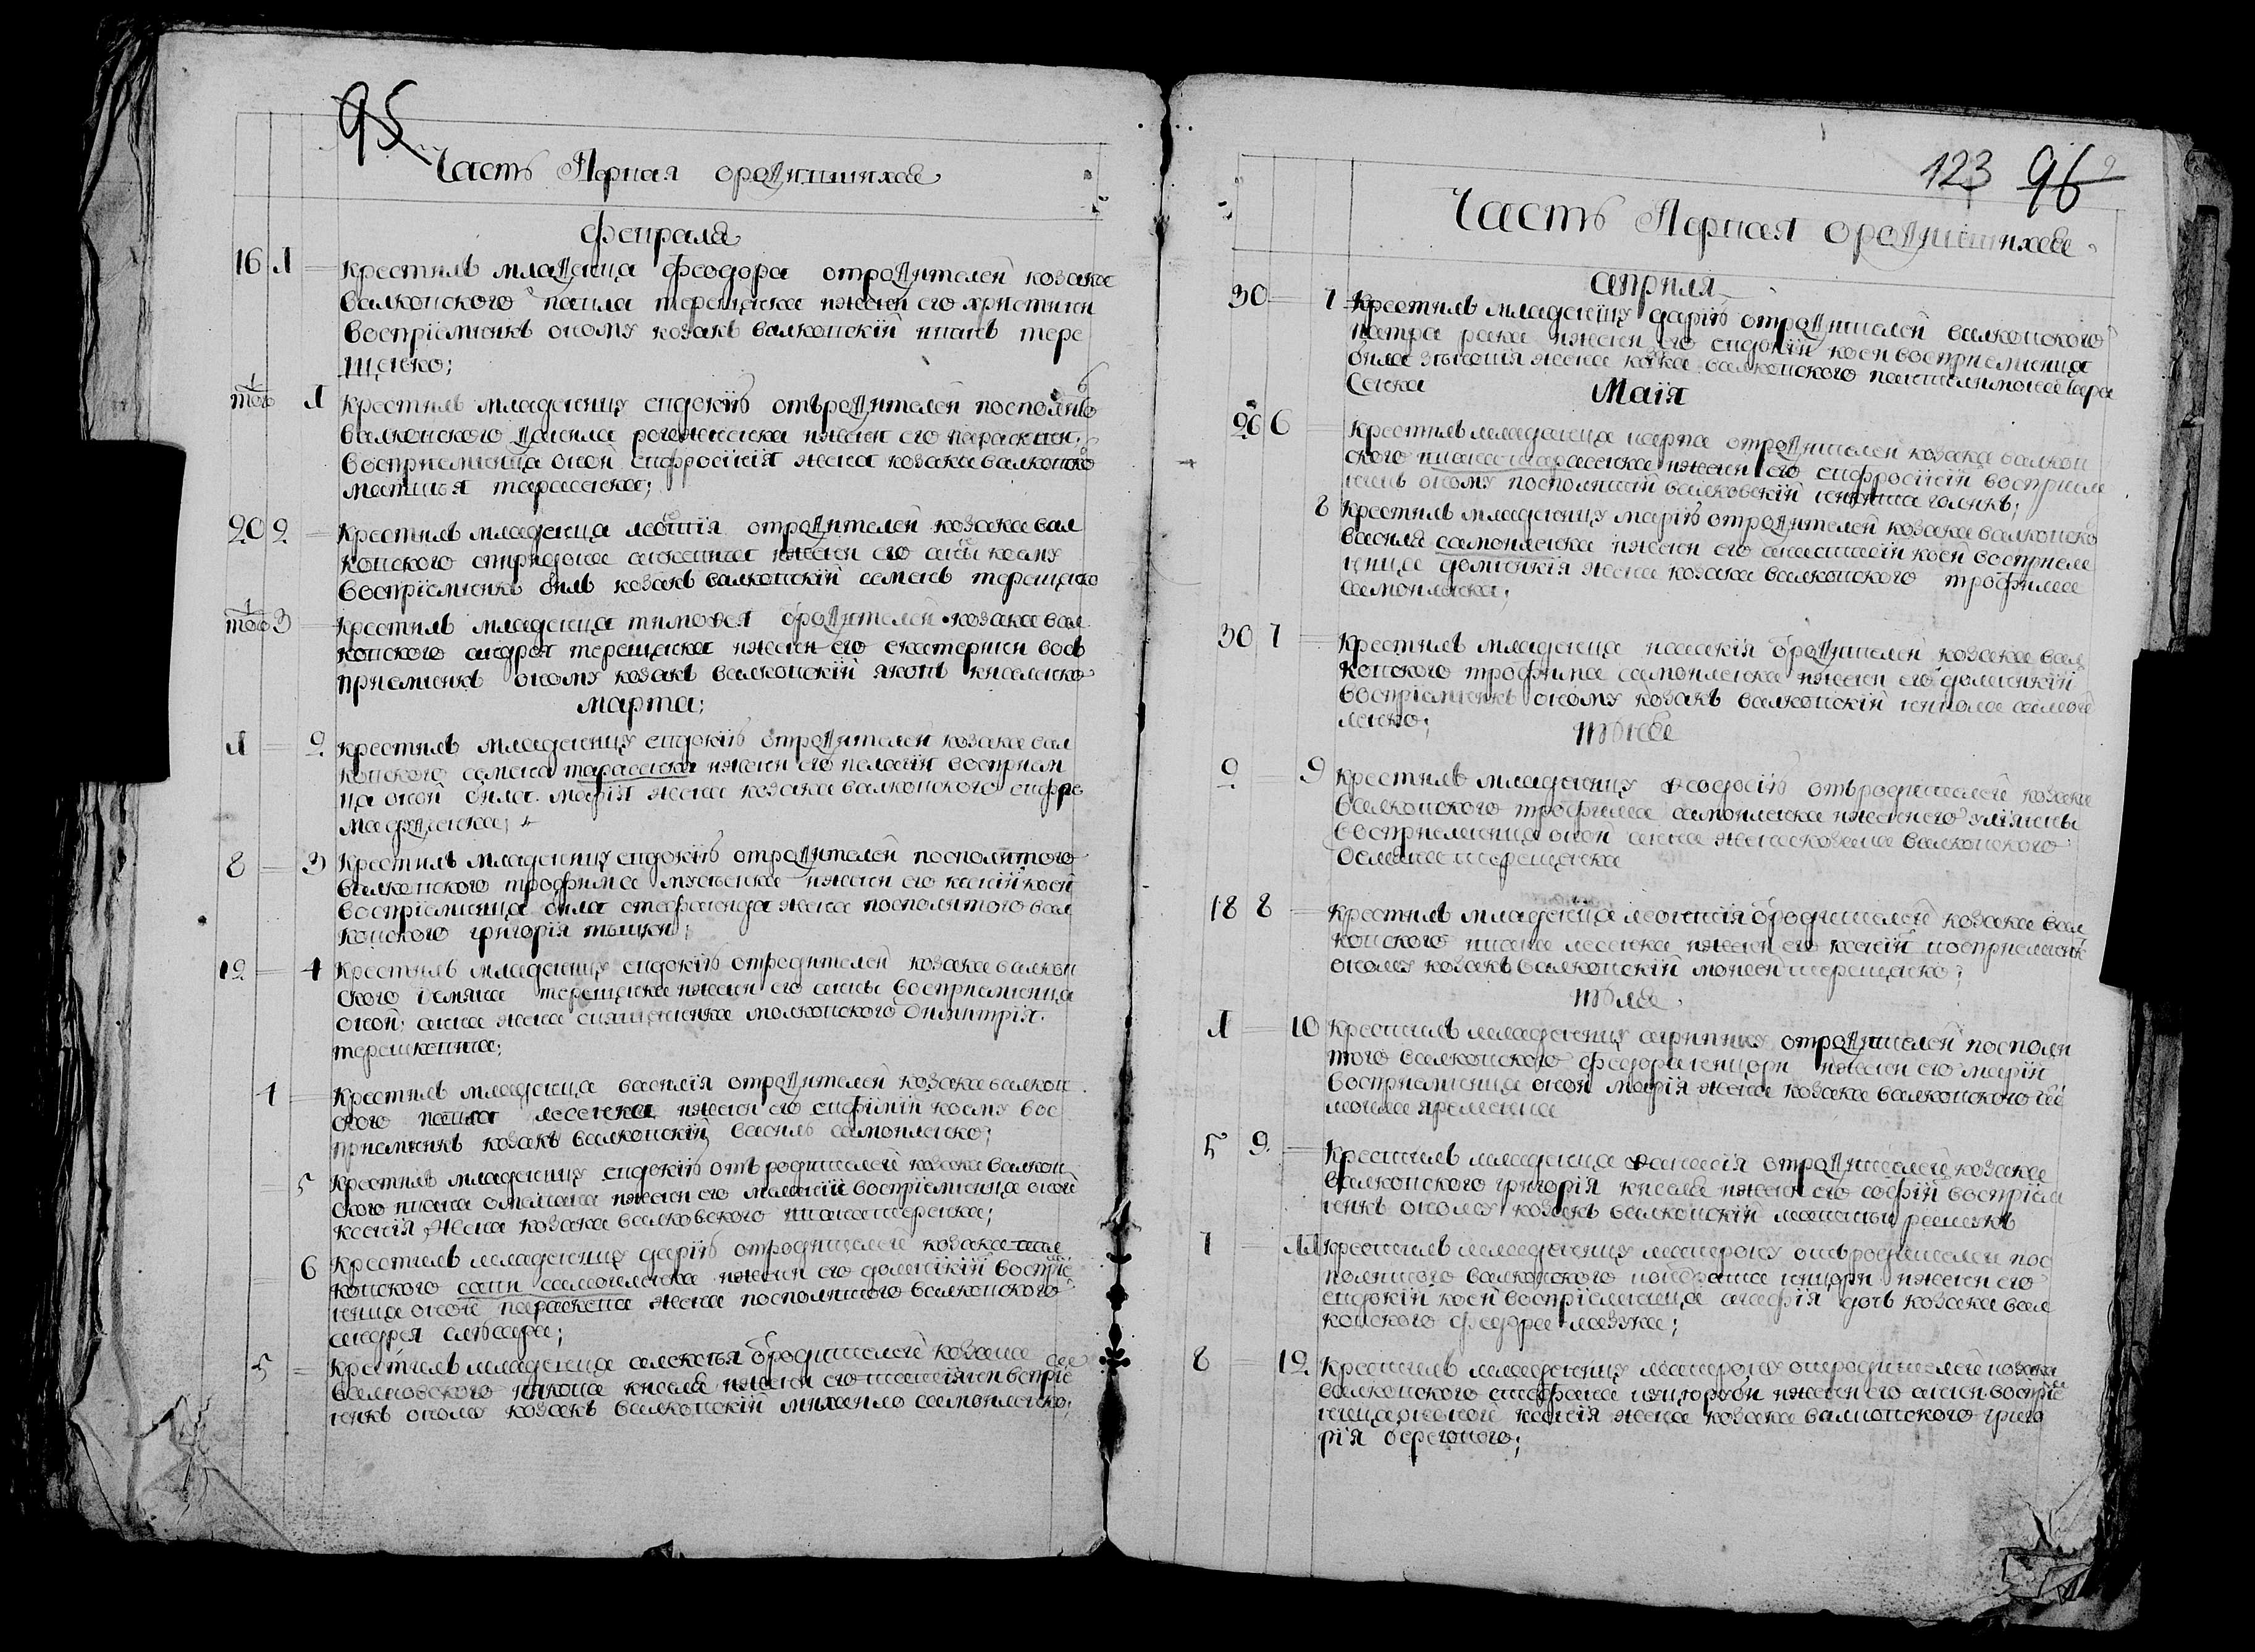 95
Часть Первая ородившихся
Февраля
16 1 Крестилъ младенца феодора отродителей козака
валковского павла терещенка ижены его христини
восприемникъ оному козакъ валковскїй иванъ тере
щенко;
того 1 Крестилъ младеницу евдокїю отъродителей посполито
валковского данила рогоженка ижены его параскеви,
восприемница оной евфросинїя жена козака валковско
матвѣя тарасенка;
20 2 Крестилъ младенца леонтїя отродителей козака вал
ковского спиридона ижены его анны коему
восприемникъ билъ козакъ валковскїй семенъ терещенко
того 3 Крестилъ младенца тимофея ородителей козака вал
ковского андрея терещенка ижены его екатерини вос
приемникъ оному козакъ валковскїй яковъ киселенко
марта;
1 2 Крестилъ младеницу евдокїю отродителей козака вал
ковского семена тарасенка ижены его пелагїи восприем
ца оной била марїя жена козака валковского
8 3 Крестилъ младеницу евдокїю отродителей посполитого
валковского трофима мусѣенка ижены его ксенїи коей
восприемница била стефанида жена посполитого вал
ковского григорїя тышки;
12 4 Крестилъ младеницу евдокїю отродителей козака валков
ского демяна терещенка ижены его анны восприемница
оной анна жена священника молковского димитрїя
терешкевича;
4 Крестилъ младенца василїя отродителей козака валков
ского павла лесенка ижены его евфимїи коему вос
приемникъ козакъ валковскїй василь самойленко;
5 Крестилъ младеницу евдокїю отъ родителей козака валков
ского ивана ижены его меланїи восприемница оной
ксенїя жена козака валковского ивана шеренка;
6 Крестилъ младеницу дарїю отродителей козака вал
ковского сави самойленка ижены его домникїи воспрїе
мница оной параскева жена посполитого валковского
андрея слѣсара;
5 Крестилъ младенца алексѣя ородителей козака
валковского никона киселя ижены его восприе
мникъ оному козакъ валковскїй михайло самойленко;
123 96
Часть Первая ородившихся
априля
30 7 Крестилъ младеницу дарїю отродителей валковского
петра рака ижены его евдокїи коей восприемница
била жена козака валковского пантелимона тара
сенка
Маїя
26 6 Крестилъ младенца карпа отродителей козака валков
ского ивана тарасенка ижены его евфросинїи восприем
никъ оному посполитий валковскїй голикъ;
8 Крестилъ младеницу марїю отродителей козака валковско
василя самойленка ижены его анастасїи коей восприем
ница домникїя жена козака валковского трофима
самойленка;
30 7 Крестилъ младенца ородителей козака вал
ковского трофима самойленка ижены его домникїи
восприемникъ оному козакъ валковскїй никола самой
ленко;
июня
2 9 Крестилъ младеницу феодосїю отъродителей козака
валковского трофима самойленка ижены его улїяны
восприемница оной анна жена козака валковского
терещенка
18 8 Крестилъ младенца леонтїя ородителей козака вал
ковского ивана лесенка ижены его ксенїи восприемникъ
оному козакъ валковскїй моисей терещенко;
июля
1 10 Крестилъ младеницу агрипину отродителей посполи
того валковского феодора ижены его марїи
восприемница оной марїя жена козака валковского си
мона яременка
5 9 Крестилъ младенца афанасїя отродителей козака
валковского григорїя киселя ижены его софїи воспрїем
никъ оному козакъ валковскїй
7 11 Крестилъ младеницу матрону отъродителей пос
политого валковского ижены его
евдокїи коей восприемница агафїя дочь козака вал
ковского федора мазука;
8 12 Крестилъ младеницу матрону отродителей козака
валковского стефана ижены его анни воспрїе
мница оной ксенїя жена козака валковского григо
рїя берегового;